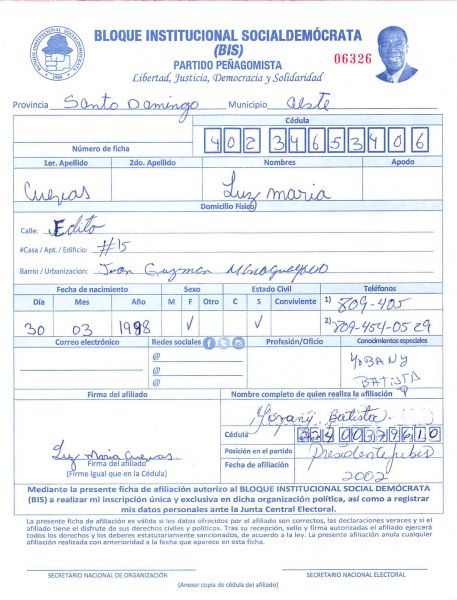 BLOQUE INSTITUCIONAL SOCIALDEMÓCRATA
(BIS)
PARTIDO PEÑAGOMISTA
Libertad, Justicia, Democracia y Solidaridad
06326
BLOQUE INSTITUCIONAL SOCIALDEMOCRATA
Provincia Santo Domingo Municipio oeste
Cédula
Número de ficha 402 3465340 6
1er. Apellido 2do. Apellido Nombres Apodo
Cuevas Luz maria
Domicilio Físico
Calle: Edito
#Casa / Apt. / Edificio: #15
Barrio / Urbanización: Juan Guzman
Fecha de nacimiento Sexo Estado Civil Teléfonos
Día Mes Año M F Otro C S Conviviente 1) 809-405
30 03 1998 ✓ ✓ 2) 809-454-0529
Correo electrónico Redes sociales Profesión/Oficio Conocimientos especiales
@
@
@
YOBANY
BATISTA
Firma del afiliado Nombre completo de quien realiza la afiliación
Batista
Cédula
Luz Maria Cuevas Posición en el partido Presidente
Firma del afiliado Fecha de afiliación
(Firme igual que en la Cédula) 2002
Mediante la presente ficha de afiliación autorizo al BLOQUE INSTITUCIONAL SOCIAL DEMÓCRATA
(BIS) a realizar mi inscripción única y exclusiva en dicha organización política, así como a registrar
mis datos personales ante la Junta Central Electoral.
La presente ficha de afiliación es válida si los datos ofrecidos por el afiliado son correctos, las declaraciones veraces y si el
afiliado tiene el disfrute de sus derechos civiles y políticos. Tras su recepción, sello y firma autorizados el afiliado ejercerá
todos los derechos y los deberes estatutariamente sancionados, de acuerdo a la ley. La presente afiliación anula cualquier
afiliación realizada con anterioridad a la fecha que aparece en esta ficha.
SECRETARIO NACIONAL DE ORGANIZACIÓN SECRETARIO NACIONAL ELECTORAL
(Anexar copia de cédula del afiliado)